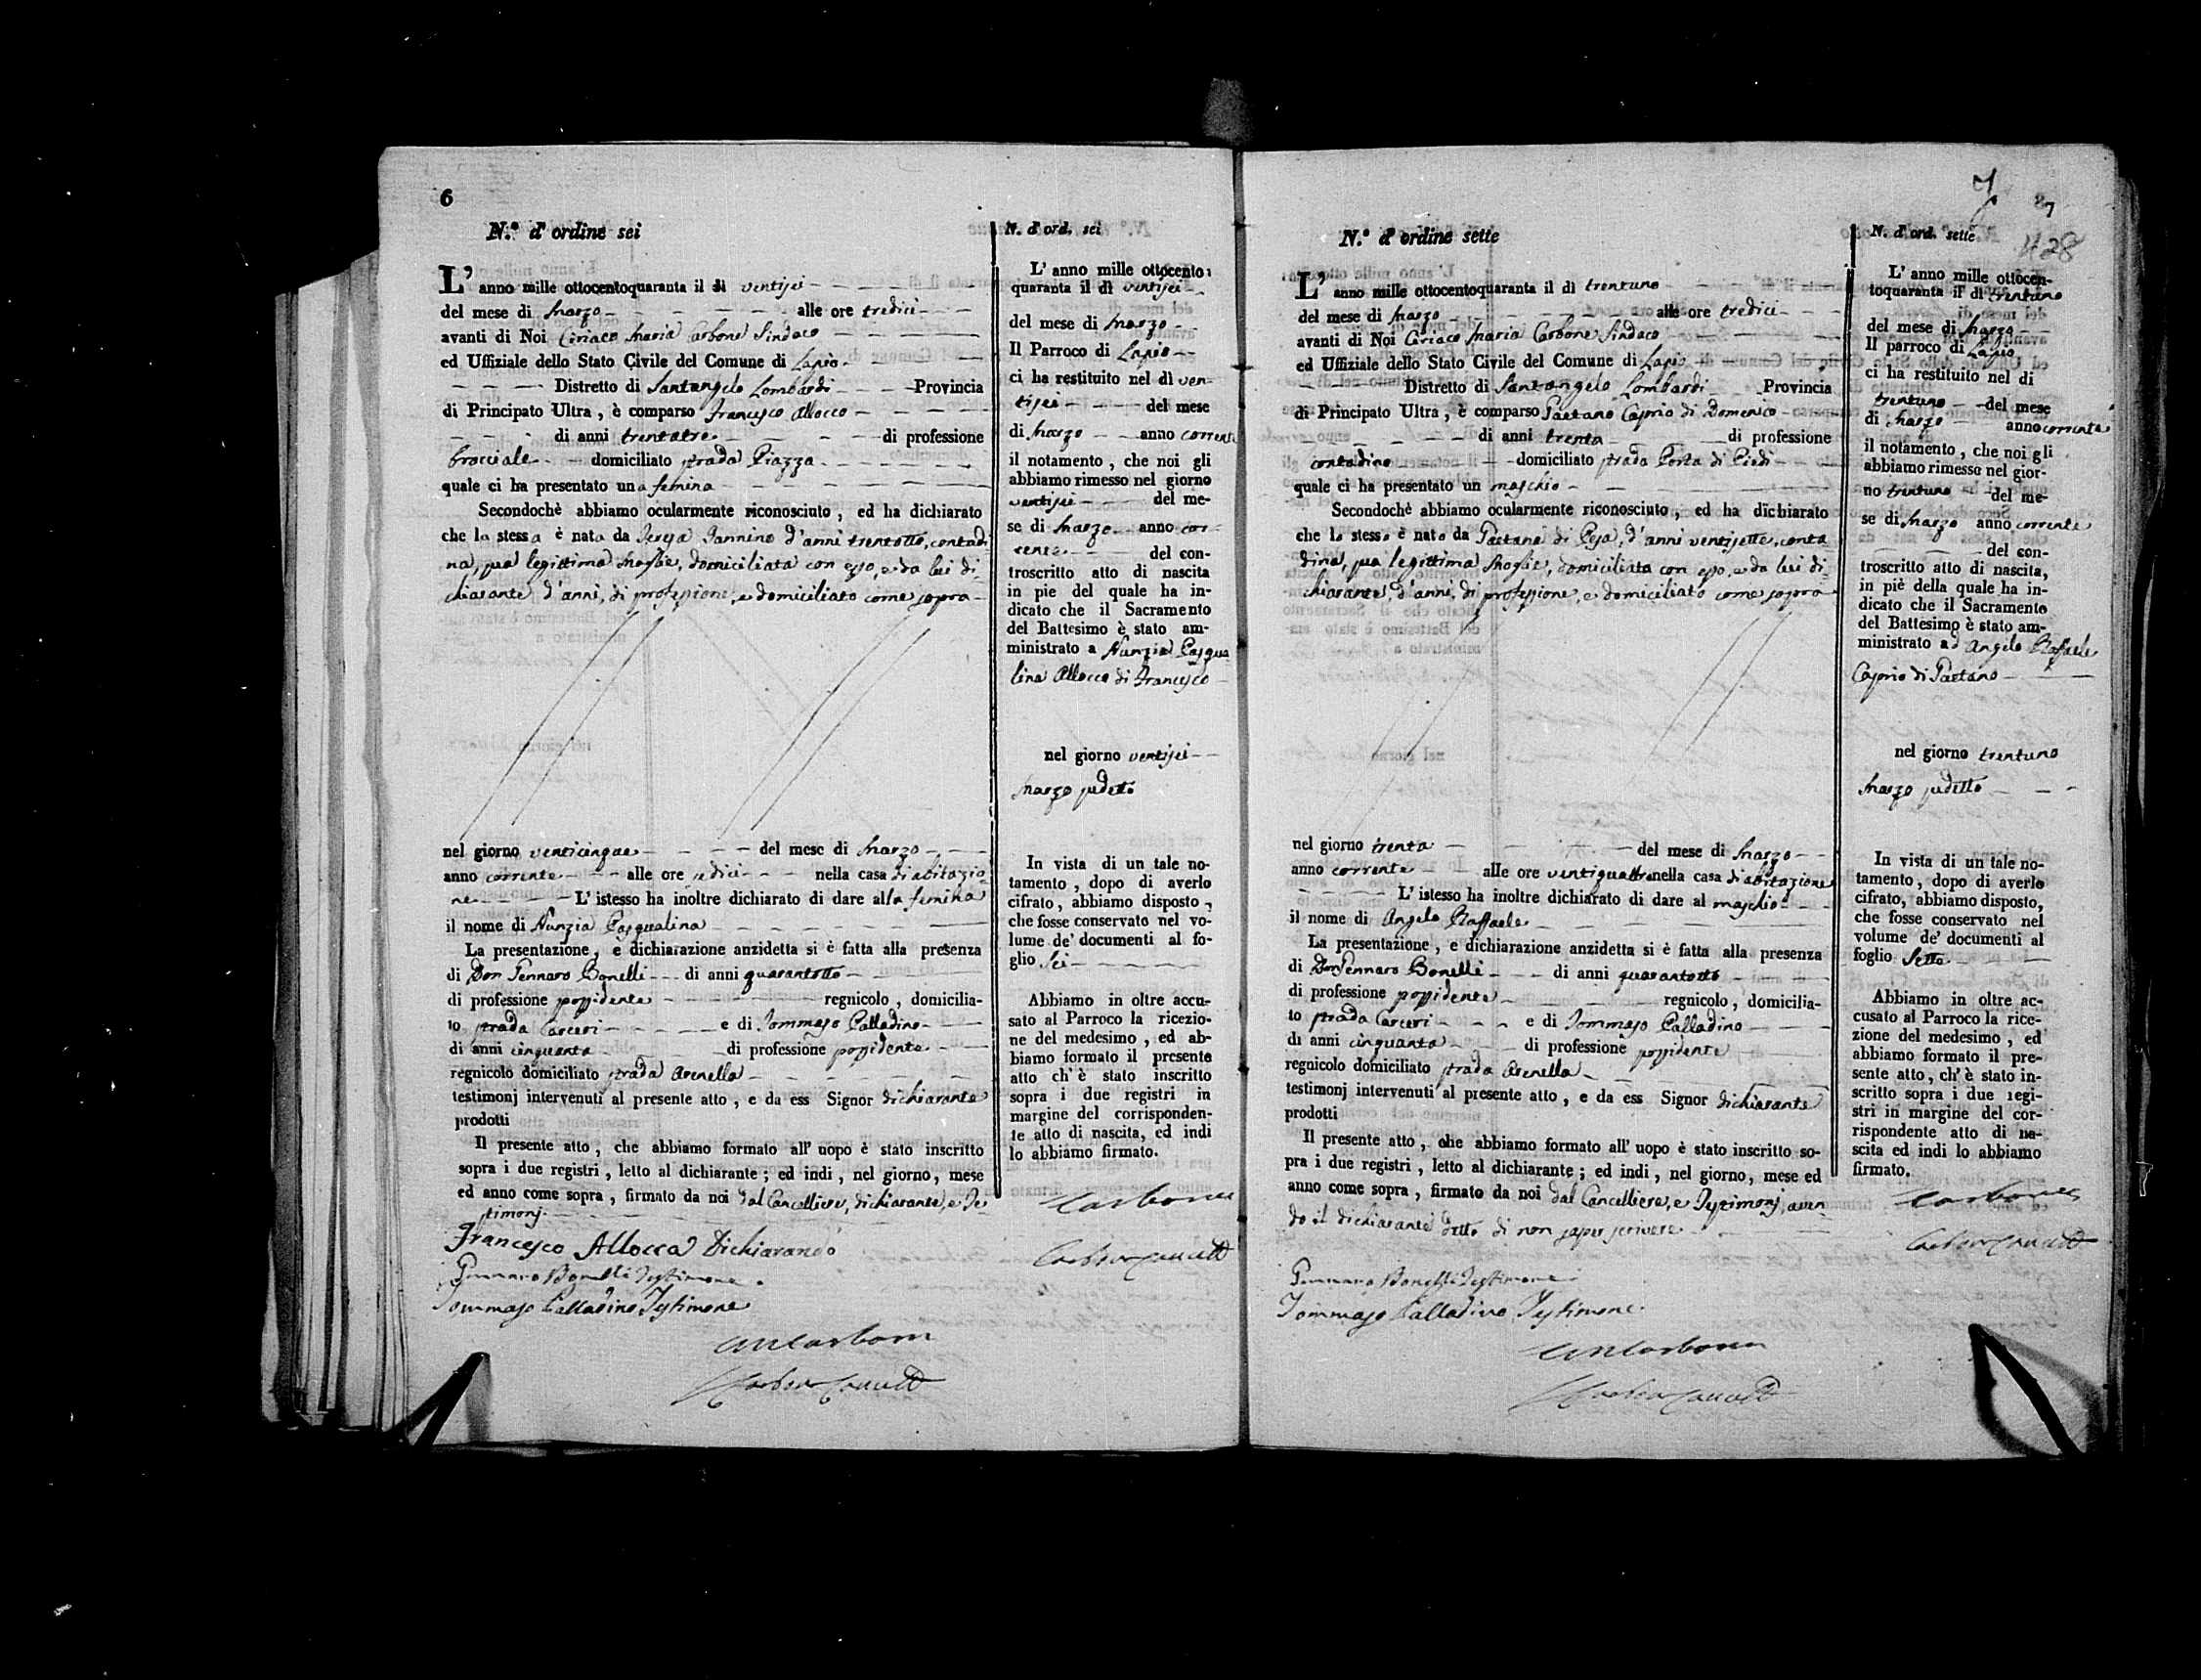 6
N.º d' ordine sei
L' anno mille ottocentoquaranta il dì ventisei
del mese di Marzo alle ore tredici
avanti di Noi Ciriaco Maria Carbone Sindaco
ed Uffiziale dello Stato Civile del Comune di Lapio
Distretto di Santangelo Lombardi Provincia
di Principato Ultra, è comparso Francesco Allocco
di anni trentatre di professione
bracciale domiciliato strada Piazza
quale ci ha presentato una femina
Secondochè abbiamo ocularmente riconosciuto, ed ha dichiarato
che la stessa è nata da Teresa Iannino d'anni trentotto, contadi
na, sua legittima Moglie, domiciliata con esso, e da lui di-
chiarante d'anni, di professione, e domiciliato come sopra
nel giorno venticinque del mese di Marzo
anno corrente alle ore sedici nella casa di abitazio-
ne L' istesso ha inoltre dichiarato di dare alla femina
il nome di Nunzia Pasqualina
La presentazione, e dichiarazione anzidetta si è fatta alla presenza
di Don Gennaro Bonelli di anni quarantotto
di professione possidente regnicolo, domicilia-
to strada Carceri e di Tommaso Palladino
di anni cinquanta di professione possidente
regnicolo domiciliato strada Arenella
testimonj intervenuti al presente atto, e da ess Signor dichiarante
prodotti
Il presente atto, che abbiamo formato all' uopo è stato inscritto
sopra i due registri, letto al dichiarante; ed indi, nel giorno, mese
ed anno come sopra, firmato da noi dal Cancelliere, dichiarante, e Te-
stimonj.
Francesco Allocca Dichiarando
Gennaro Bonelli Testimone
Tommaso Palladino Testimone
N. d' ord. sei
L' anno mille ottocento
quaranta il dì ventisei
del mese di Marzo
Il Parroco di Lapio
ci ha restituito nel dì ven-
tisei del mese
di Marzo anno corrente
il notamento, che noi gli
abbiamo rimesso nel giorno
ventisei del me-
se di Marzo anno cor-
rente del con-
troscritto atto di nascita
in pie del quale ha in-
dicato che il Sacramento
del Battesimo è stato am-
ministrato a Nunzia Pasqua
lina Allocca di Francesco
nel giorno ventisei
Marzo sudetto
In vista di un tale no-
tamento, dopo di averlo
cifrato, abbiamo disposto,
che fosse conservato nel vo-
lume de' documenti al fo-
glio Sei
Abbiamo in oltre accu-
sato al Parroco la ricezio-
ne del medesimo, ed ab-
biamo formato il presente
atto ch' è stato inscritto
sopra i due registri in
margine del corrisponden-
te atto di nascita, ed indi
lo abbiamo firmato.
Carbone
7
87
428
N.º d' ordine sette
L' anno mille ottocentoquaranta il dì trentuno
del mese di Marzo alle ore tredici
avanti di Noi Ciriaco Maria Carbone Sindaco
ed Uffiziale dello Stato Civile del Comune di Lapio
Distretto di Santangelo Lombardi Provincia
di Principato Ultra, è comparso Gaetano Caprio di Domenico
di anni trenta di professione
contadino domiciliato strada Porta di Piedi
quale ci ha presentato un maschio
Secondochè abbiamo ocularmente riconosciuto, ed ha dichiarato
che lo stesso è nato da Gaetana di Pesa, d'anni ventisette, conta
dina, sua legittima Moglie, domiciliata con esso, e da lui di-
chiarante, d'anni, di professione, e domiciliato come sopra
nel giorno trenta del mese di Marzo
anno corrente alle ore ventiquattro nella casa di abitazione
L' istesso ha inoltre dichiarato di dare al maschio
il nome di Angelo Raffaele
La presentazione, e dichiarazione anzidetta si è fatta alla presenza
di Don Gennaro Bonelli di anni quarantotto
di professione possidente regnicolo, domicilia-
to strada Carceri e di Tommaso Palladino
di anni cinquanta di professione possidente
regnicolo domiciliato strada Arenella
testimonj intervenuti al presente atto, e da ess Signor dichiarante
prodotti
Il presente atto, che abbiamo formato all' uopo è stato inscritto so-
pra i due registri, letto al dichiarante; ed indi, nel giorno, mese ed
anno come sopra, firmato da noi dal Cancelliere, e Testimonj, aven-
do il dichiarante detto di non saper scrivere
Gennaro Bonelli Testimone
Tommaso Palladino Testimone
N. d' ord. sette
L' anno mille ottocen-
toquaranta il dì trentuno
del mese di Marzo
Il parroco di Lapio
ci ha restituito nel di
trentuno del mese
di Marzo anno corrente
il notamento, che noi gli
abbiamo rimesso nel gior-
no trentuno del me-
se di Marzo anno corrente
del con-
troscritto atto di nascita,
in piè della quale ha in-
dicato che il Sacramento
del Battesimo è stato am-
ministrato ad Angelo Raffaele
Caprio di Gaetano
nel giorno trentuno
Marzo sudetto
In vista di un tale no-
tamento, dopo di averlo
cifrato, abbiamo disposto,
che fosse conservato nel
volume de' documenti al
foglio Sette
Abbiamo in oltre ac-
cusato al Parroco la rice-
zione del medesimo, ed
abbiamo formato il pre-
sente atto, ch' è stato in-
scritto sopra i due regi-
stri in margine del cor-
rispondente atto di na-
scita ed indi lo abbiamo
firmato.
Carbone